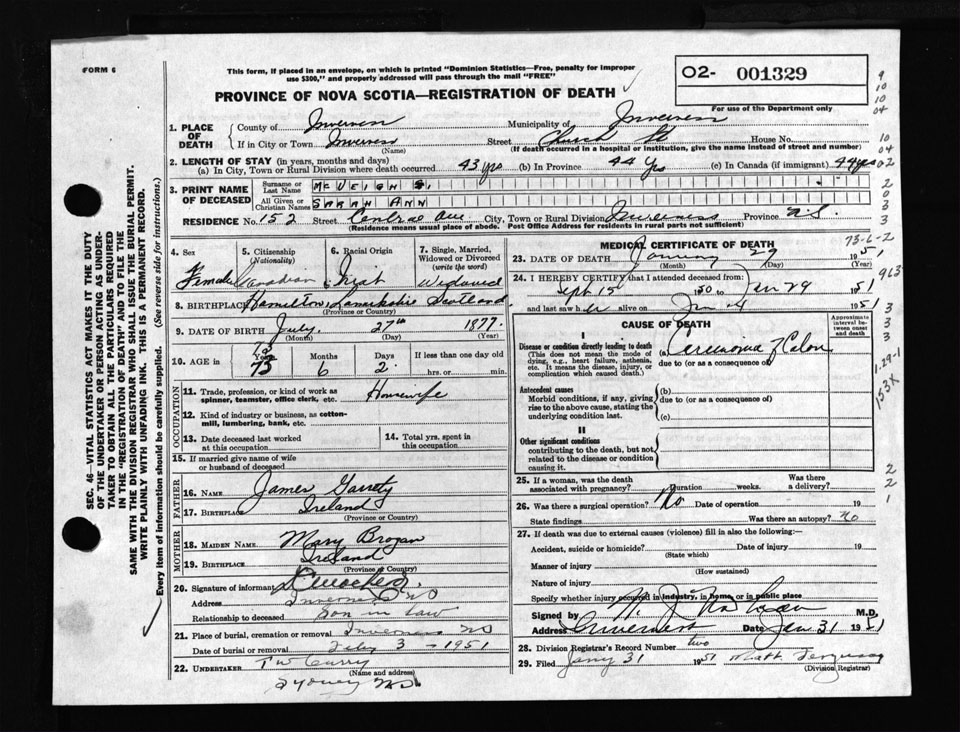 FORM 6
This form, if placed in an envelope, on which is printed "Dominion Statistics—Free, penalty for improper
use $300," and properly addressed will pass through the mail "FREE"
O2- 001329
For use of the Department only
PROVINCE OF NOVA SCOTIA—REGISTRATION OF DEATH
1. PLACE OF DEATH
County of Inverness Municipality of Inverness
If in City or Town Inverness Street Church St House No.
(Name) (If death occurred in a hospital or institution, give the name instead of street and number)
2. LENGTH OF STAY (in years, months and days)
(a) In City, Town or Rural Division where death occurred 43 yrs (b) In Province 44 Yrs (c) In Canada (if immigrant) 44 yrs
3. PRINT NAME OF DECEASED
Surname or Last Name McVEIGH
All Given or Christian Names SARAH ANN
RESIDENCE No. 152 Street Central Ave City, Town or Rural Division Inverness Province N.S.
(Residence means usual place of abode. Post Office Address for residents in rural parts not sufficient)
4. Sex
Female
5. Citizenship (Nationality)
Canadian
6. Racial Origin
Irish
7. Single, Married, Widowed or Divorced (write the word)
Widowed
8. BIRTHPLACE Hamilton, Lanarkshire Scotland
(Province or Country)
9. DATE OF BIRTH July 27th 1877
(Month) (Day) (Year)
10. AGE in Years Months Days If less than one day old
73 6 2 hrs. or min.
OCCUPATION
11. Trade, profession, or kind of work as spinner, teamster, office clerk, etc. Housewife
12. Kind of industry or business, as cotton-mill, lumbering, bank, etc.
13. Date deceased last worked at this occupation
14. Total yrs. spent in this occupation
15. If married give name of wife or husband of deceased
FATHER
16. NAME James Garrety
17. BIRTHPLACE Ireland
(Province or Country)
MOTHER
18. MAIDEN NAME Mary Brogan
19. BIRTHPLACE Ireland
(Province or Country)
20. Signature of informant
Address Inverness NS
Relationship to deceased Son in Law
21. Place of burial, cremation or removal Inverness NS
Date of burial or removal Feby 3 - 1951
22. UNDERTAKER T W Curry
(Name and address)
Sydney NS
MEDICAL CERTIFICATE OF DEATH
23. DATE OF DEATH January 29 1951
(Month) (Day) (Year)
24. I HEREBY CERTIFY that I attended deceased from:
Sept 15 1950 to Jan 29 1951
and last saw her alive on Jan 1951
CAUSE OF DEATH
Approximate interval between onset and death
I
Disease or condition directly leading to death
(This does not mean the mode of dying, e.g., heart failure, asthenia, etc. It means the disease, injury, or complication which caused death.)
(a) Carcinoma of Colon
due to (or as a consequence of)
Antecedent causes
Morbid conditions, if any, giving rise to the above cause, stating the underlying condition last.
(b)
due to (or as a consequence of)
(c)
II
Other significant conditions
contributing to the death, but not related to the disease or condition causing it.
25. If a woman, was the death associated with pregnancy? Duration weeks. Was there a delivery?
26. Was there a surgical operation? No Date of operation 19
State findings Was there an autopsy? No
27. If death was due to external causes (violence) fill in also the following:—
Accident, suicide or homicide? Date of injury 19
(State which)
Manner of injury
(How sustained)
Nature of injury
Specify whether injury occurred in Industry, in home or in public place
Signed by M.D.
Address Inverness Date Jan 31 1951
28. Division Registrar's Record Number two
29. Filed Jany 31 1951 Matt Ferguson
(Division Registrar)
SEC. 46—VITAL STATISTICS ACT MAKES IT THE DUTY
OF THE UNDERTAKER OR PERSON ACTING AS UNDER-
TAKER TO OBTAIN ALL THE PARTICULARS REQUIRED
IN THE "REGISTRATION OF DEATH" AND TO FILE THE
SAME WITH THE DIVISION REGISTRAR WHO SHALL ISSUE THE BURIAL PERMIT.
WRITE PLAINLY WITH UNFADING INK. THIS IS A PERMANENT RECORD.
Every item of information should be carefully supplied. (See reverse side for instructions.)
9
10
10
04
10
04
02
2
0
3
3
73-6-2
963
3
3
3
1-29-1
153X
2
2
1